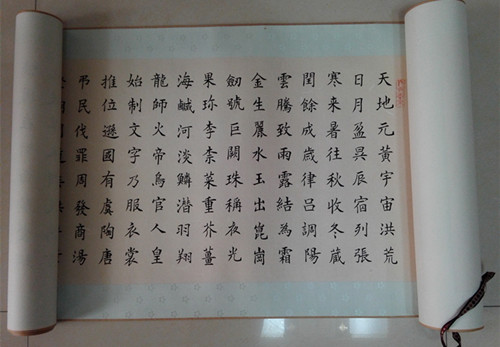 天地元黃宇宙洪荒
日月盈昃辰宿列張
寒来暑往秋收冬藏
閏餘成歲律呂調陽
雲騰致雨露結為霜
金生麗水玉出崑崗
劒號巨闕珠稱夜光
果珎李柰菜重芥薑
海鹹河淡鱗潛羽翔
龍師火帝鳥官人皇
始制文字乃服衣裳
推位遜國有虞陶唐
弔民伐罪周發商湯